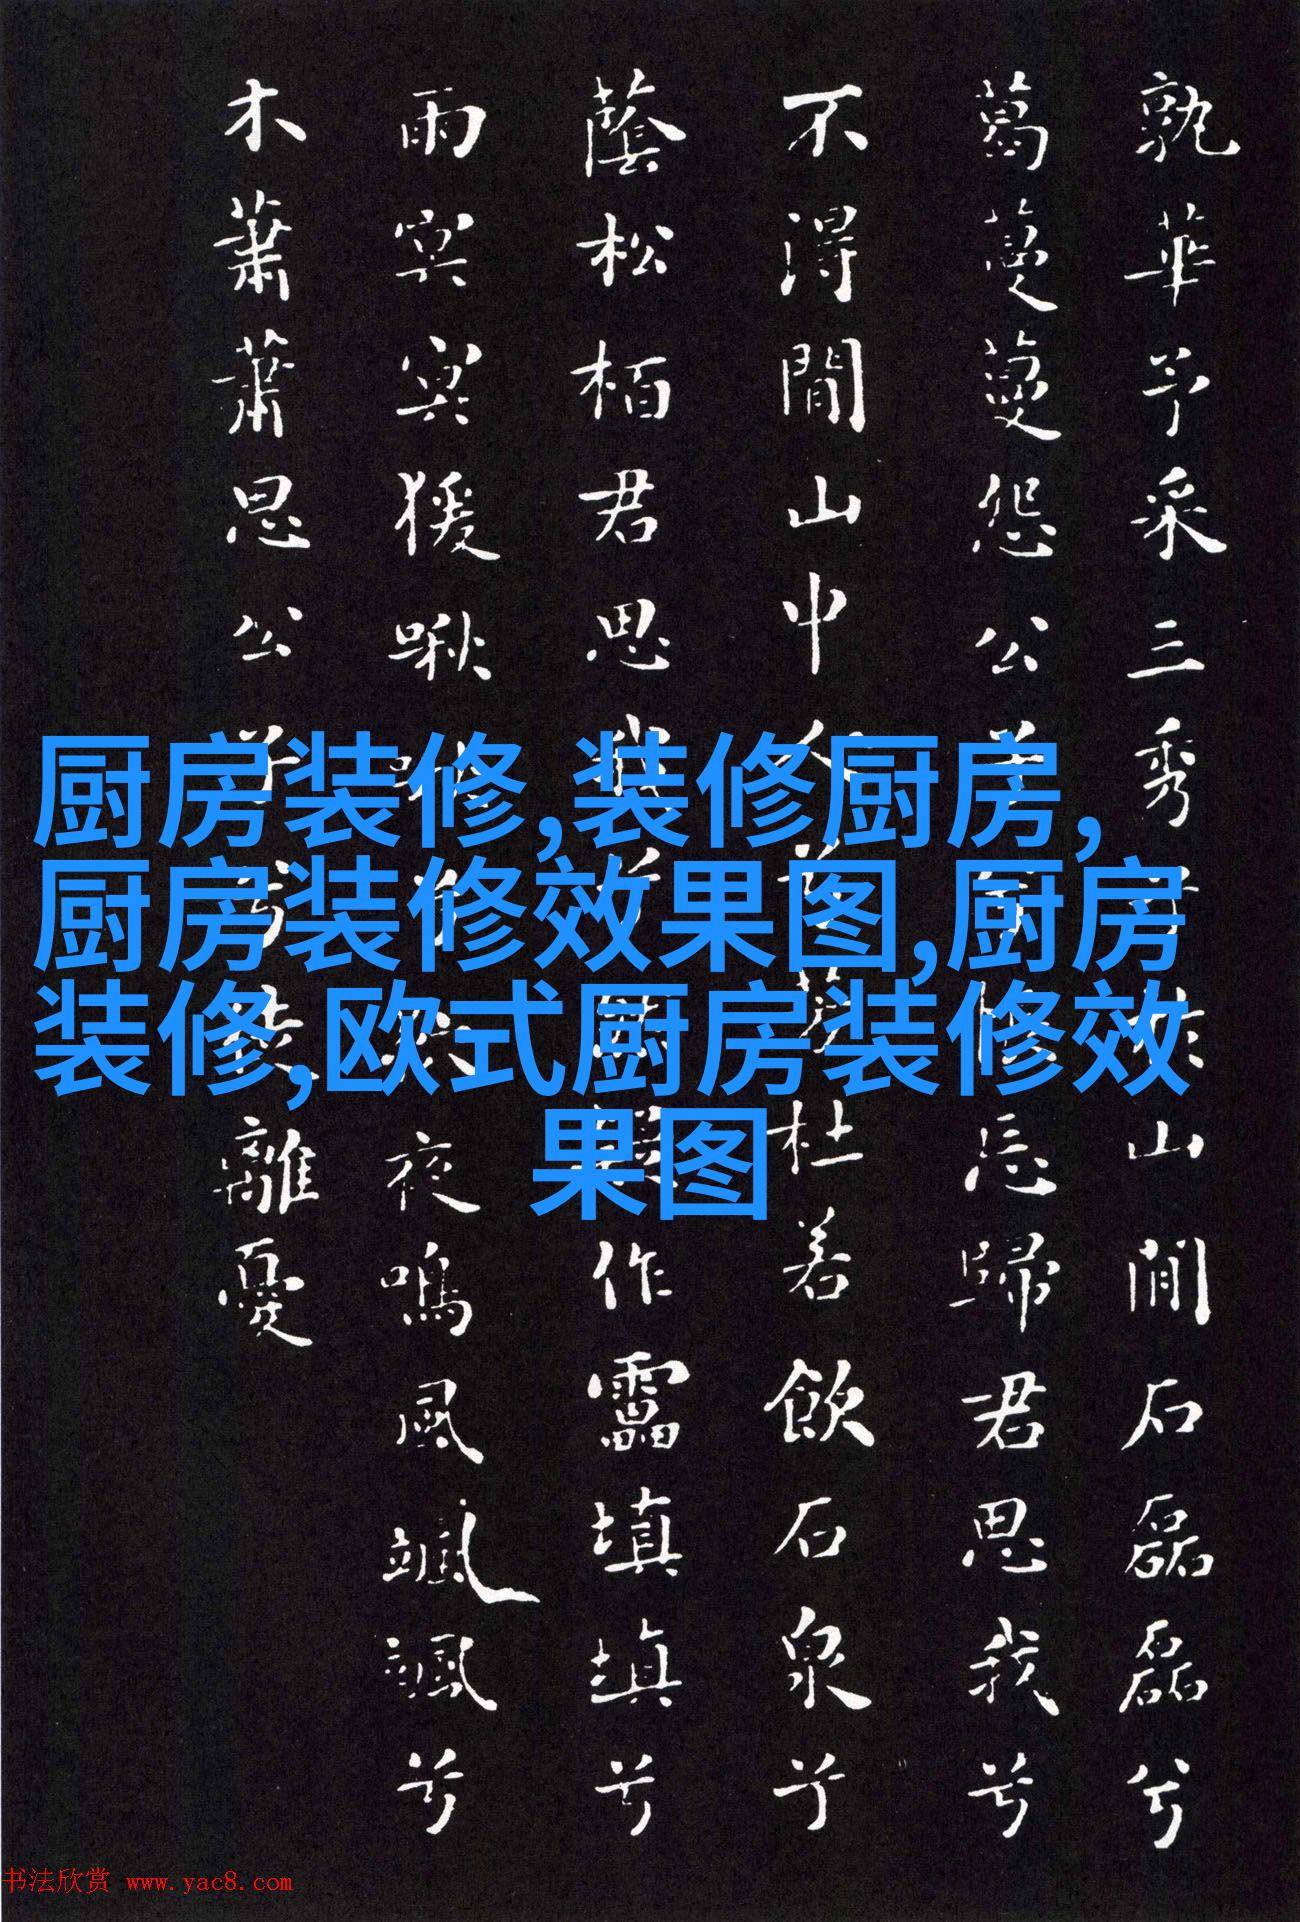 孰華予采三秀兮於山間石磊磊兮
葛蔓蔓怨公子兮悵忘歸君思我兮
不得間山中人兮芳杜若飲石泉兮
蔭松栢君思我兮作靁填填兮
雨冥冥猨啾啾兮夜鳴風颯颯兮
木蕭蕭思公子兮離憂
厨房装修,装修厨房,
厨房装修效果图,厨房
装修,欧式厨房装修效
果图
书法欣赏 www.yac8.com